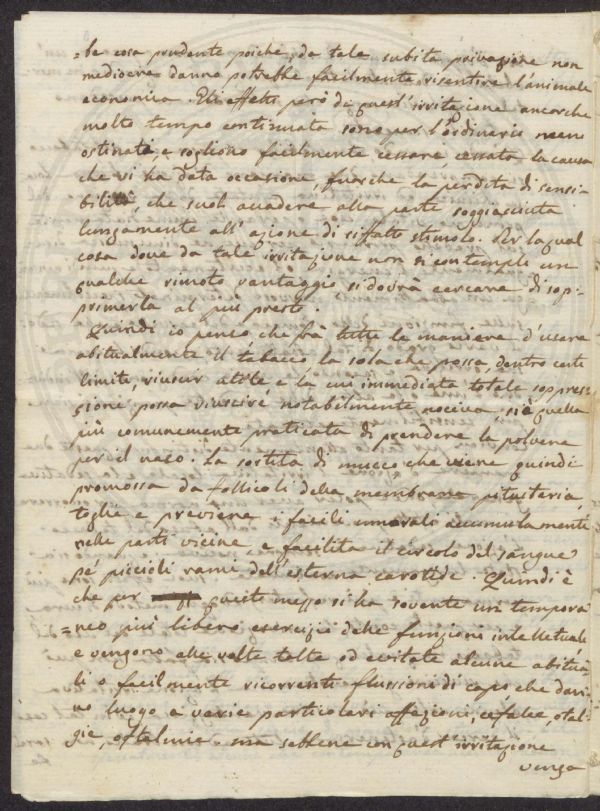 =be cosa prudente poiche, da tale subita privazione non
mediocre danno potrebbe facilmente risentire l'animale
economia. Gli effetti però di quest'irritazione ancorche
molto tempo continuata sono per l'ordinario meno
ostinati, e sogliono facilmente cessare cessata la causa
che vi ha data occasione, fuorche la perdita di sensi=
bilità, che suol accadere alla parte soggiaciuta
lungamente all'azione di siffatto stimolo. Per la qual
cosa dove da tale irritazione non si contempli un
qualche rimoto vantaggio si dovrà cercare di sop=
primerla al più presto.
Quindi io penso che frà tutte le maniere d'usare
abitualmente il tabacco la sola che possa, dentro certi
limiti, riuscir utile e la cui immediata totale soppres=
sione possa riuscire notabilmente nociva, si è quella
più comunemente praticata di prendere la polvere
per il naso. La sortita di mucco che viene quindi
promossa da follicoli della membrana pituitaria,
toglie e previene i facili umorali accumulamenti
nelle parti vicine, e facilita il circolo del sangue
pe' piccioli rami dell'esterna carotide. Quindi è
che per questo mezzo si ha sovente un tempora
=neo più libero esercizio delle funzioni intellettuali,
e vengono alle volte tolte od evitate alcune abitua
li o facilmente ricorrenti flussioni di capo, che dan=
no luogo a varie particolari affezioni, cefalee, otal=
gie, oftalmie. ma sebbene con quest'irritazione
venga